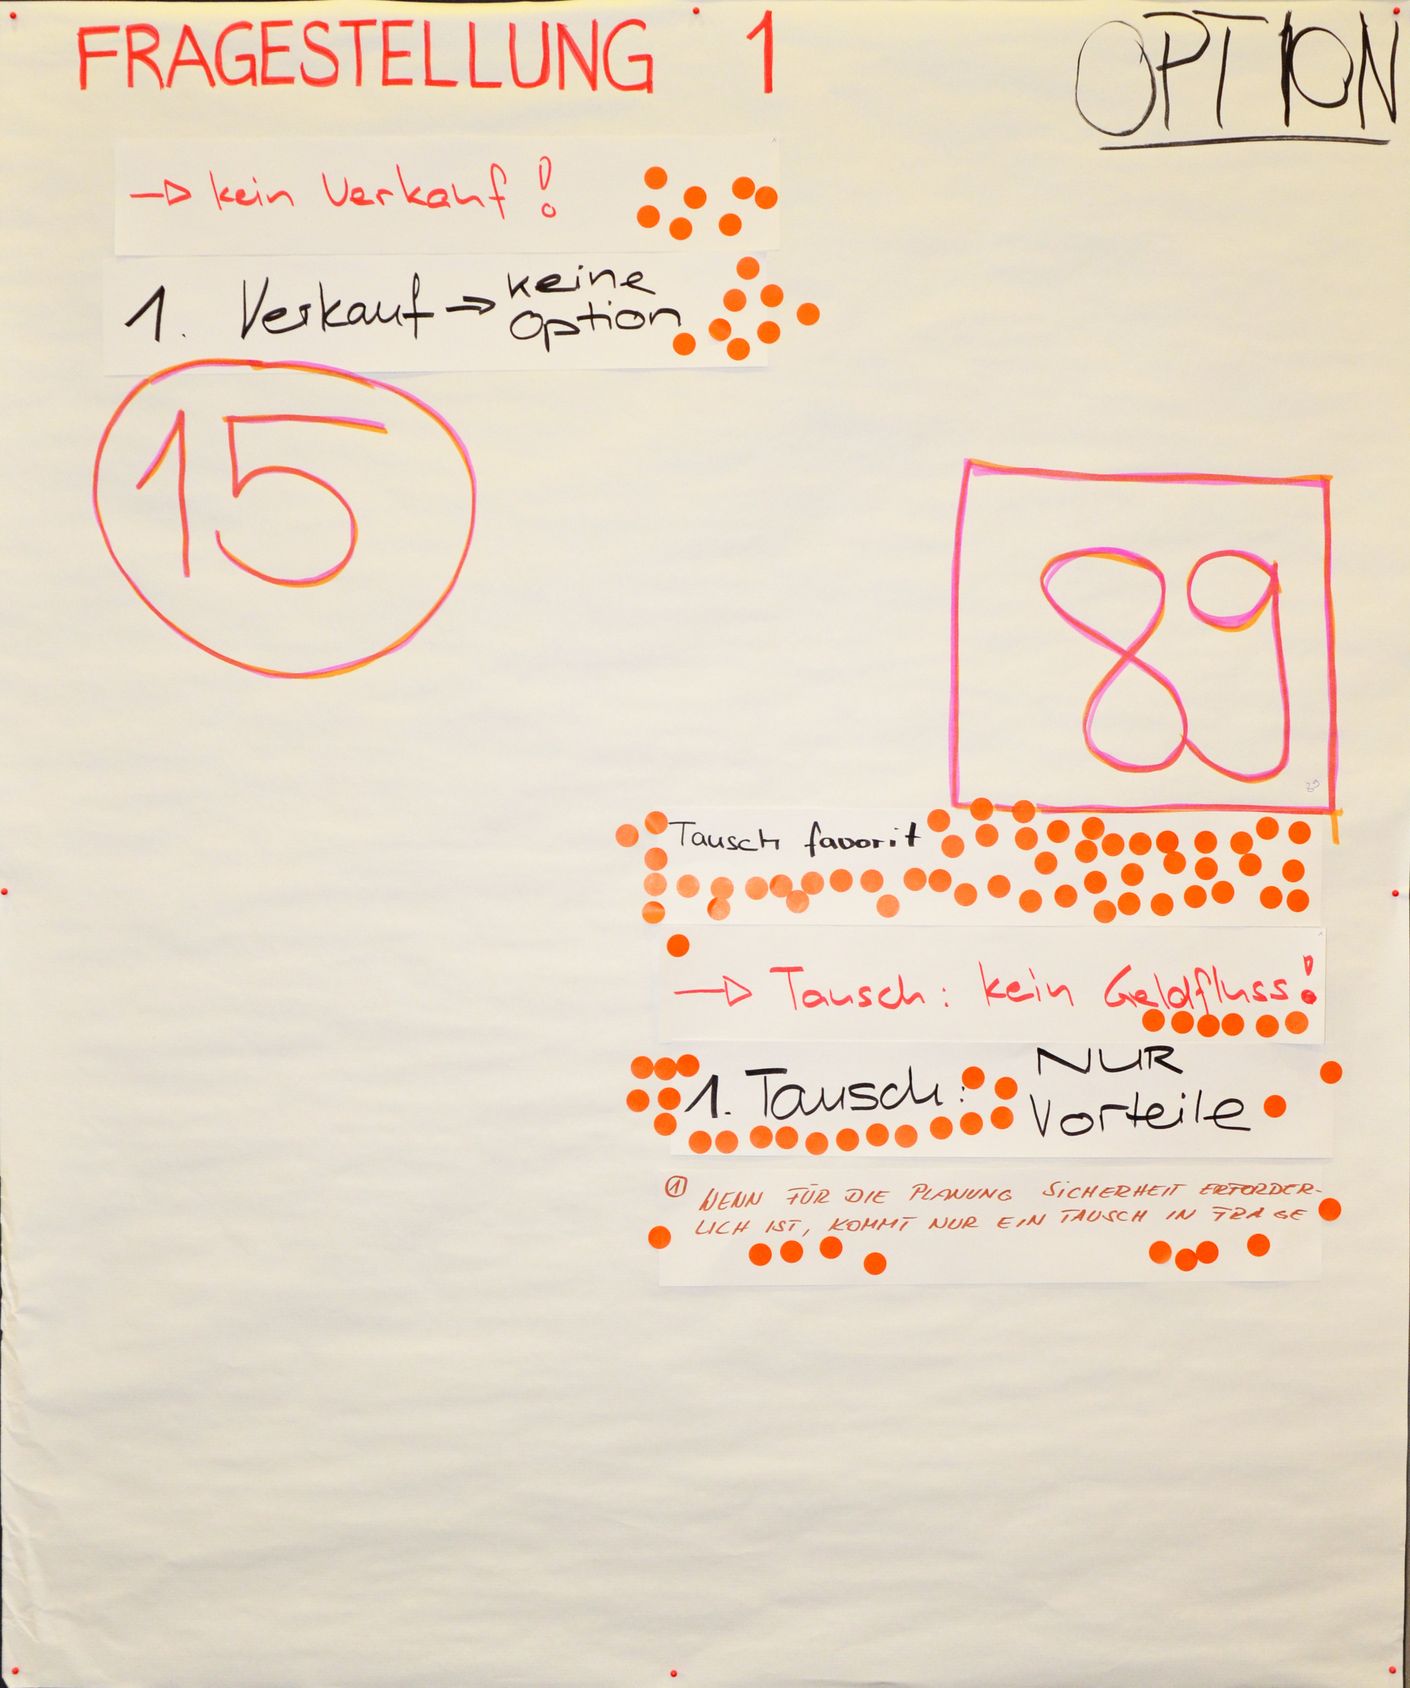 FRAGESTELLUNG 1
OPTION
→ kein Verkauf!
1. Verkauf → keine
Option
15
89
Tausch favorit
→ Tausch: kein Geldfluss!
1. Tausch: NUR
Vorteile
① WENN FÜR DIE PLANUNG SICHERHEIT ERFORDER-
LICH IST, KOMMT NUR EIN TAUSCH IN FRAGE